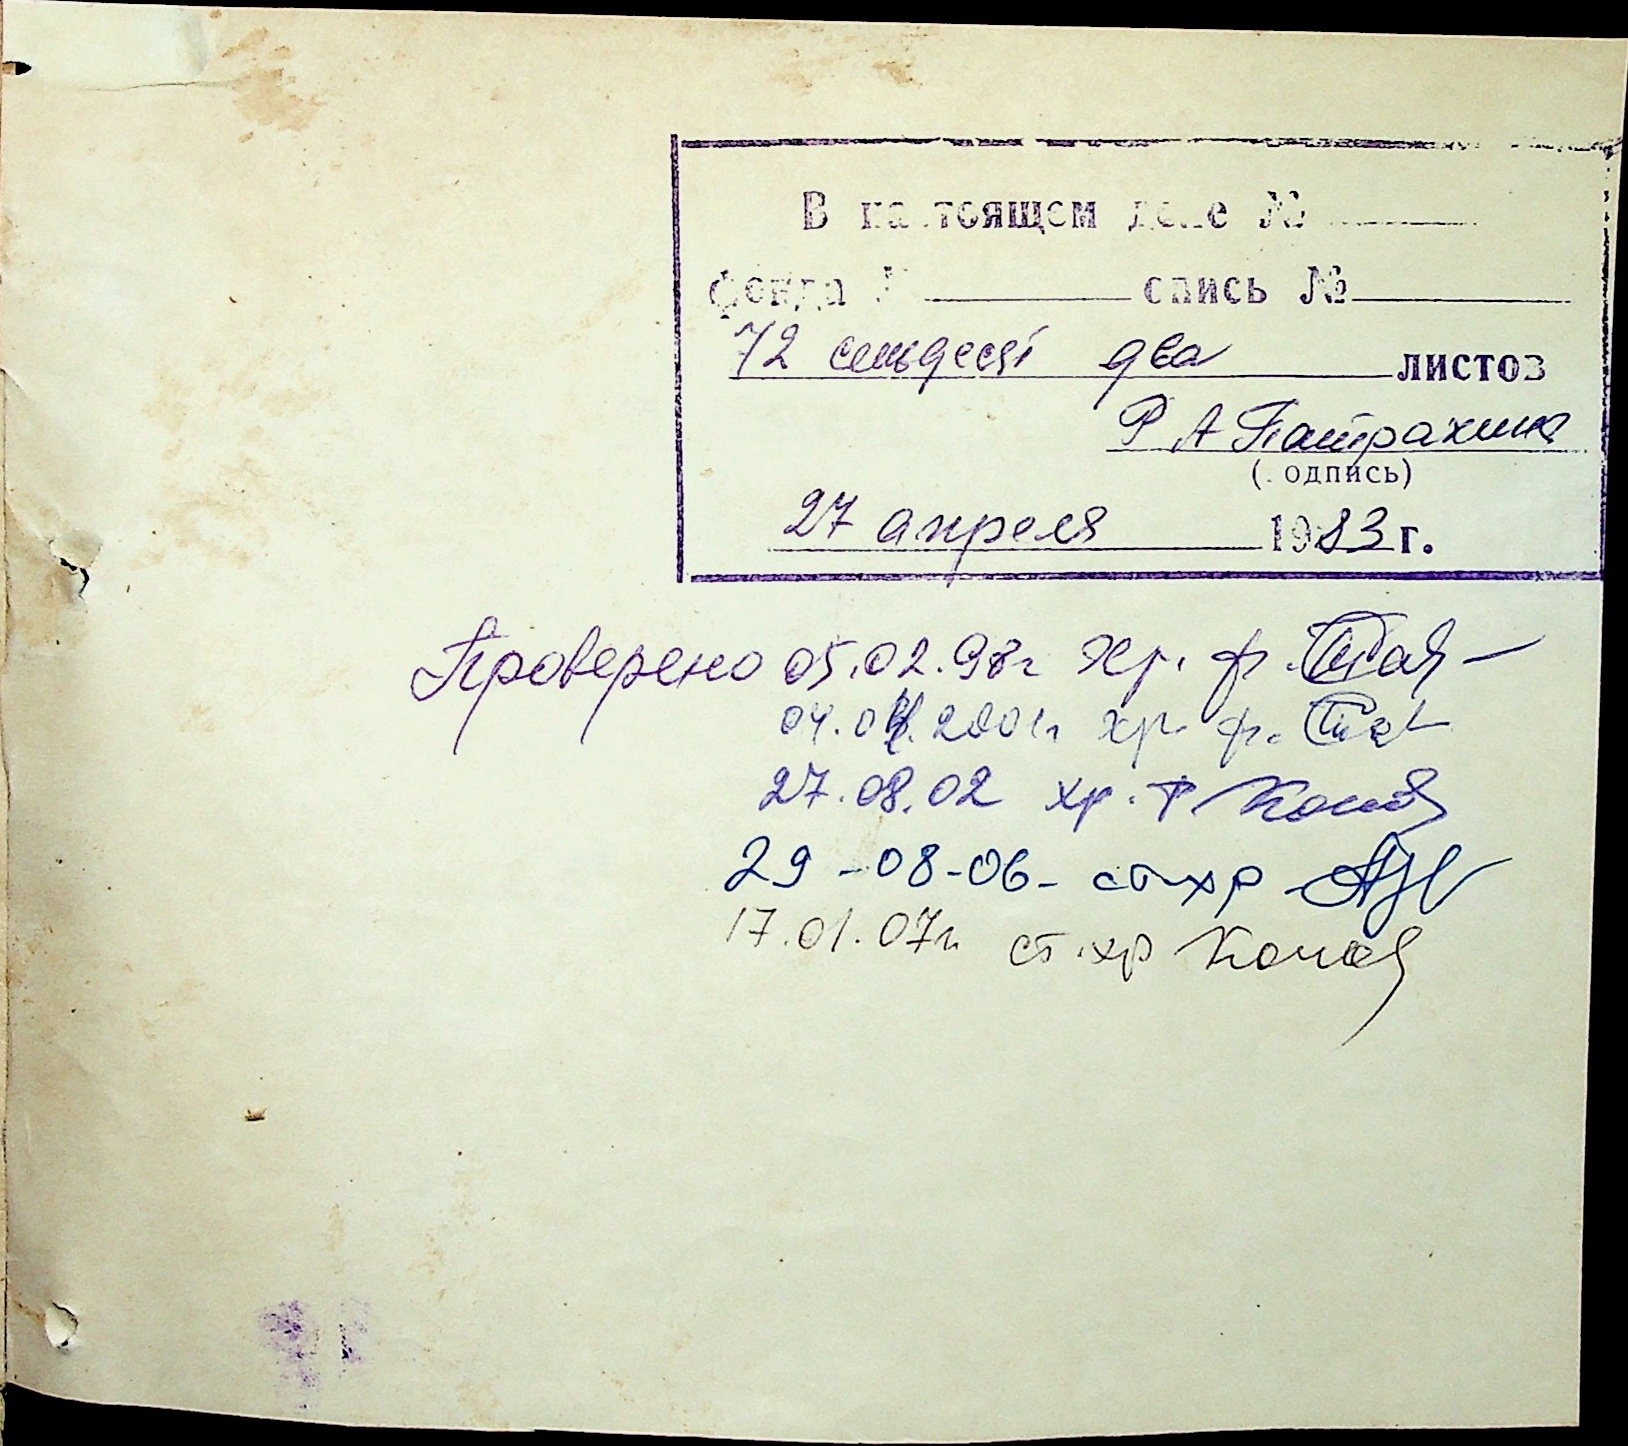 В настоящем деле №
фонда № опись №
72 семьдесят два листов
Р А Патрахина
(подпись)
27 апреля 1983 г.
Проверено 05.02.98г хр. ф.
04.04.2001г хр. ф.
27.08.02 хр. ф
29-08-06- ст хр
17.01.07г ст. хр